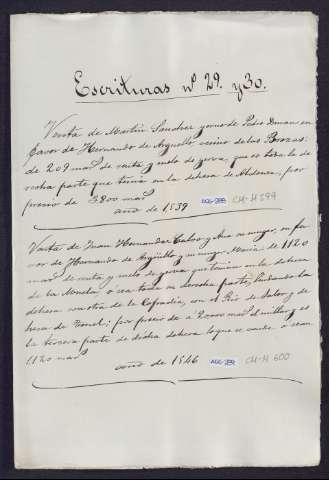 Escrituras nº 29. y 30.
Venta de Martin Sanchez yerno de Pedro Duran en
favor de Hernando de Arguello vecino de las Brozas:
de 209 mars de renta y suelo de yerva, que es toda la de
recha parte que tenia en la dehesa de por
precio de 3800 mars
año de 1539
CM-H 599
Venta de Juan Hernandez Calvo y Ana su muger, en fa
vor de Hernando de Argüello y su muger, María de 1120
mars de renta y suelo de yerva que tenian en la dehesa
de la ó sea toda su derecha parte, lindando la
dehesa con otra de la Cofradia, con el Rio de Salor y de
hesa de por precio de á 20000 mars el millar, y es
la tercera parte de dicha dehesa lo que se vende ó sean
1120 mars
año de 1546
CM-H 600